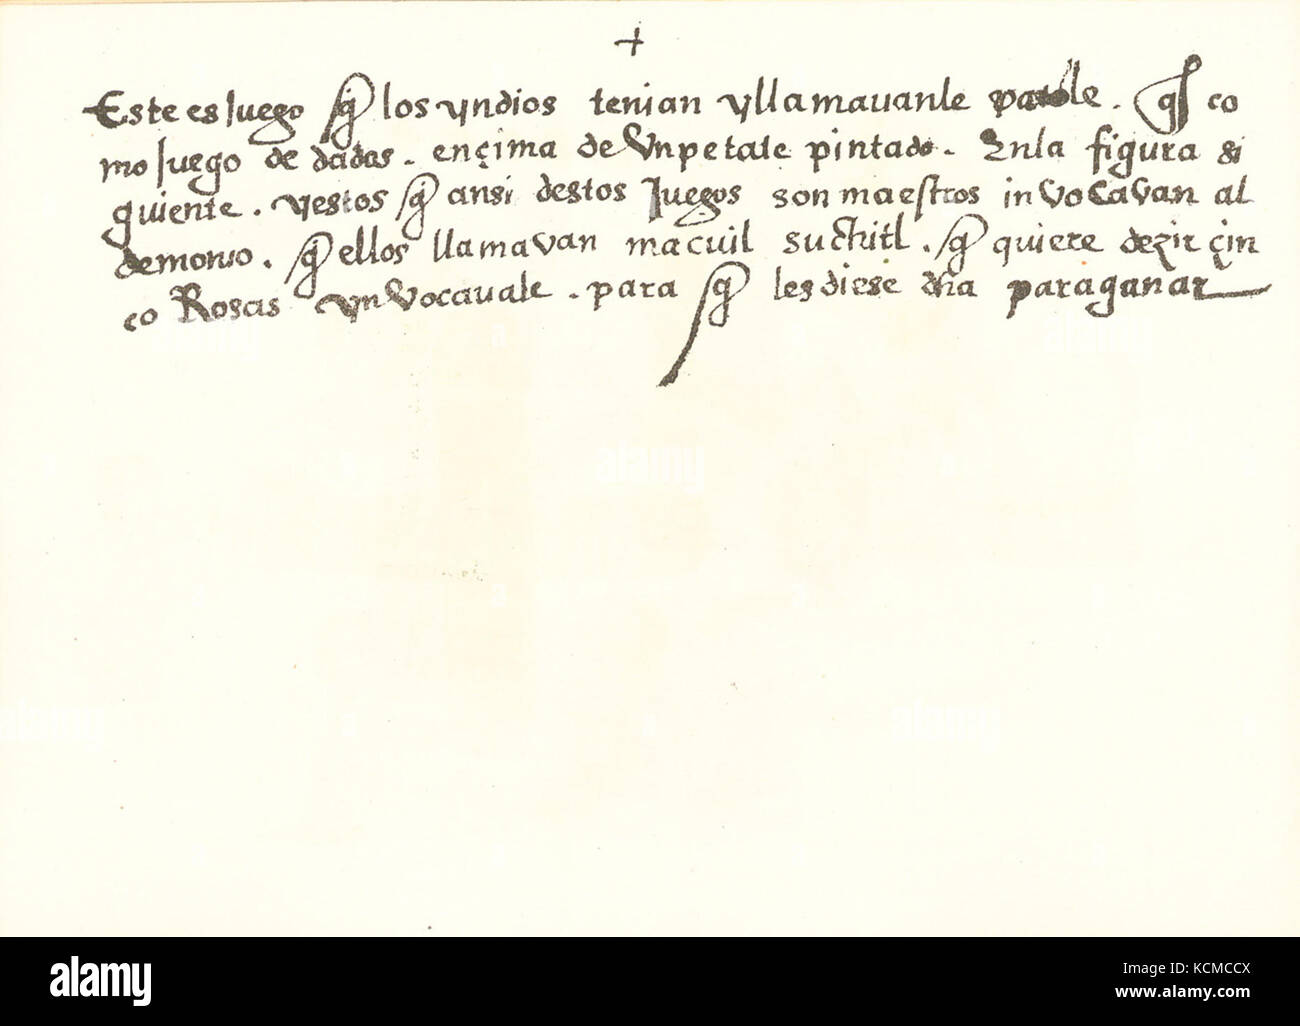 +
Este es Juego q̃ los yndios tenian y llamavanle patole. q̃ es co
mo Juego de dadas. ençima de Vn petate pintado. En la figura si
guiente. y estos q̃ ansi destos Juegos son maestros inVoCavan al
demonio. q̃ ellos llamavan macuil suchitl. q̃ quiere dezir çin
co Rosas ynVocavale. para q̃ les diese dha para ganar
alamy
alamy
alamy
alamy
alamy
alamy
Image ID: KCMCCX
www.alamy.com